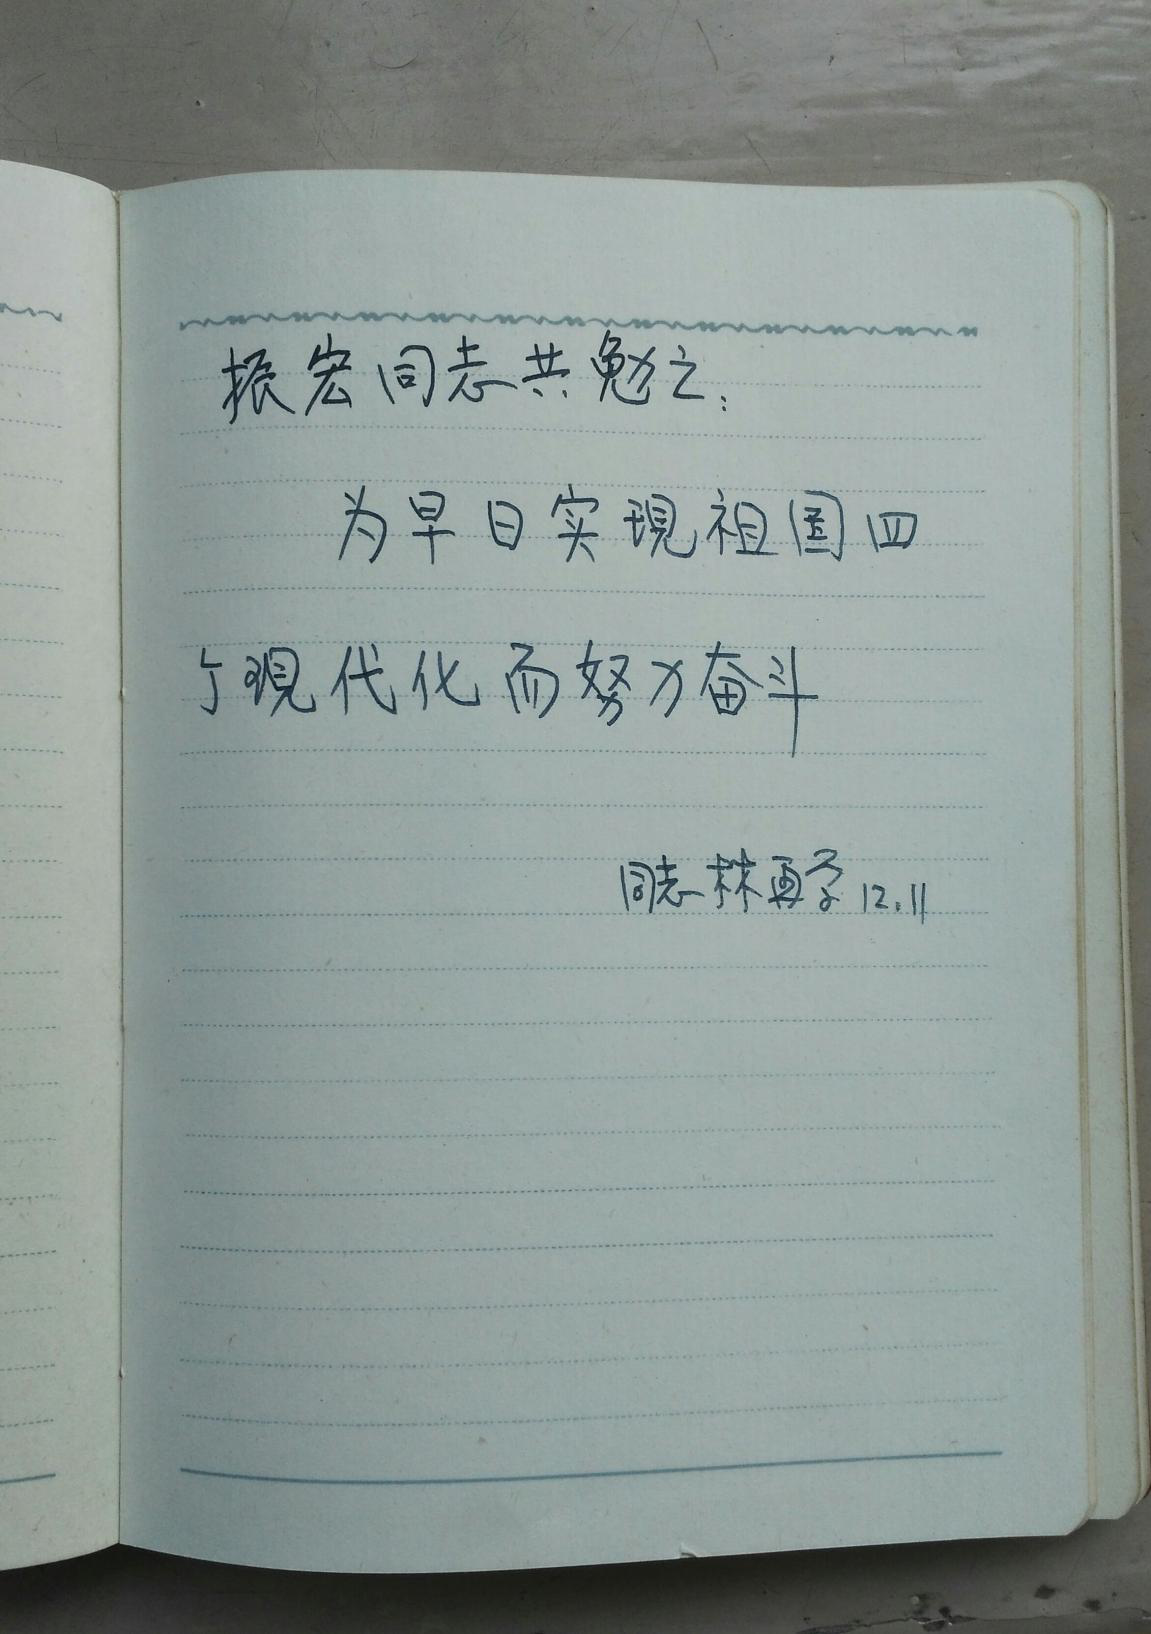 振宏同志共勉之:
为早日实現祖国四
个現代化而努力奋斗
同志林再学 12.11